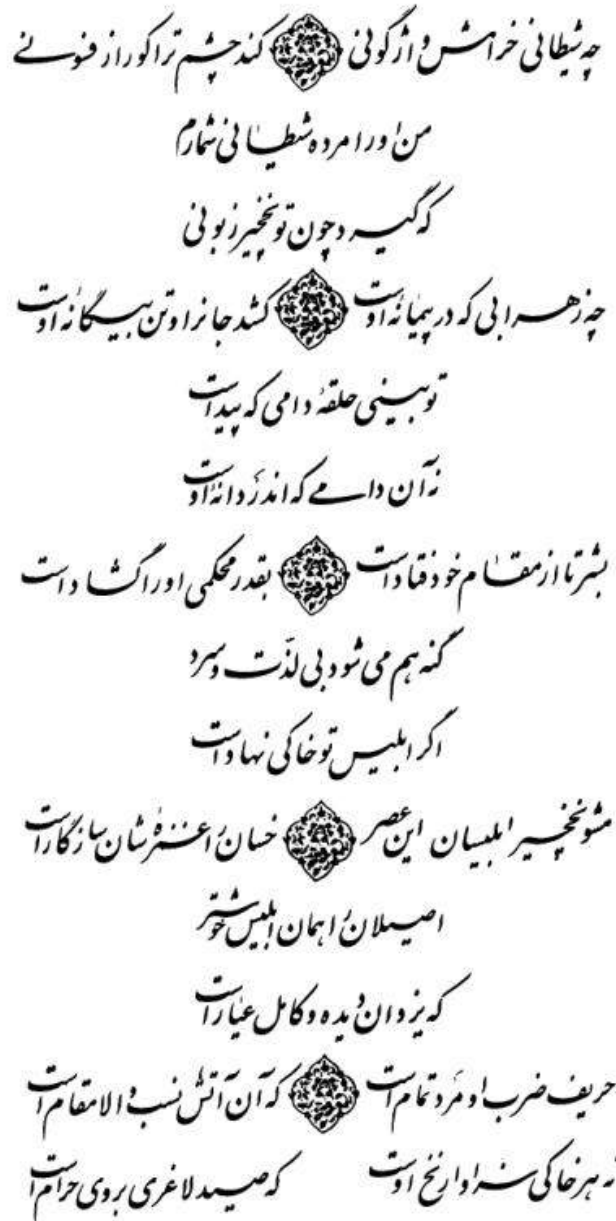 چه شیطانی خرامش واژگونی کند چشم ترا کور از فسونے
من او را مرده شیطانی شمارم
که گیرد چون تو نخچیر زبونی
چه زهرابی که در پیمانهٔ اوست کشد جانرا و تن بیگانهٔ اوست
تو بینی حلقهٔ دامی که پیداست
نه آن دامے که اندر دانهٔ اوست
بشر تا از مقام خود فتاد است بقدر محکمی او را گشاد است
گنه هم می شود بی لذت و سرد
اگر ابلیس تو خاکی نهاد است
مشو نخچیر ابلیسان این عصر خسان را غمزهٔ شان سازگار است
اصیلان را همان ابلیس خوشتر
که یزدان دیده و کامل عیار است
حریف ضرب او مرد تمام است که آن آتش نسب والا مقام است
نه هر خاکی سزاوار نخ اوست که صید لاغری بر وی حرام است